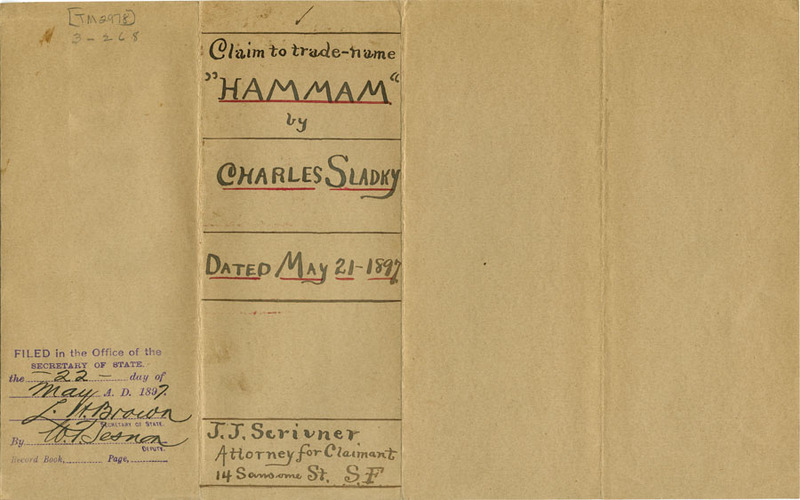 [TM2978]
3-268
Claim to trade-name
"HAMMAM"
by
CHARLES SLADKY
DATED MAY 21-1897
J. J. Scrivner
Attorney for Claimant
14 Sansome St. S.F
FILED in the Office of the
SECRETARY OF STATE.
the -22- day of
May A. D. 1897.
L. H. Brown
SECRETARY OF STATE.
By
DEPUTY.
Record Book, Page,